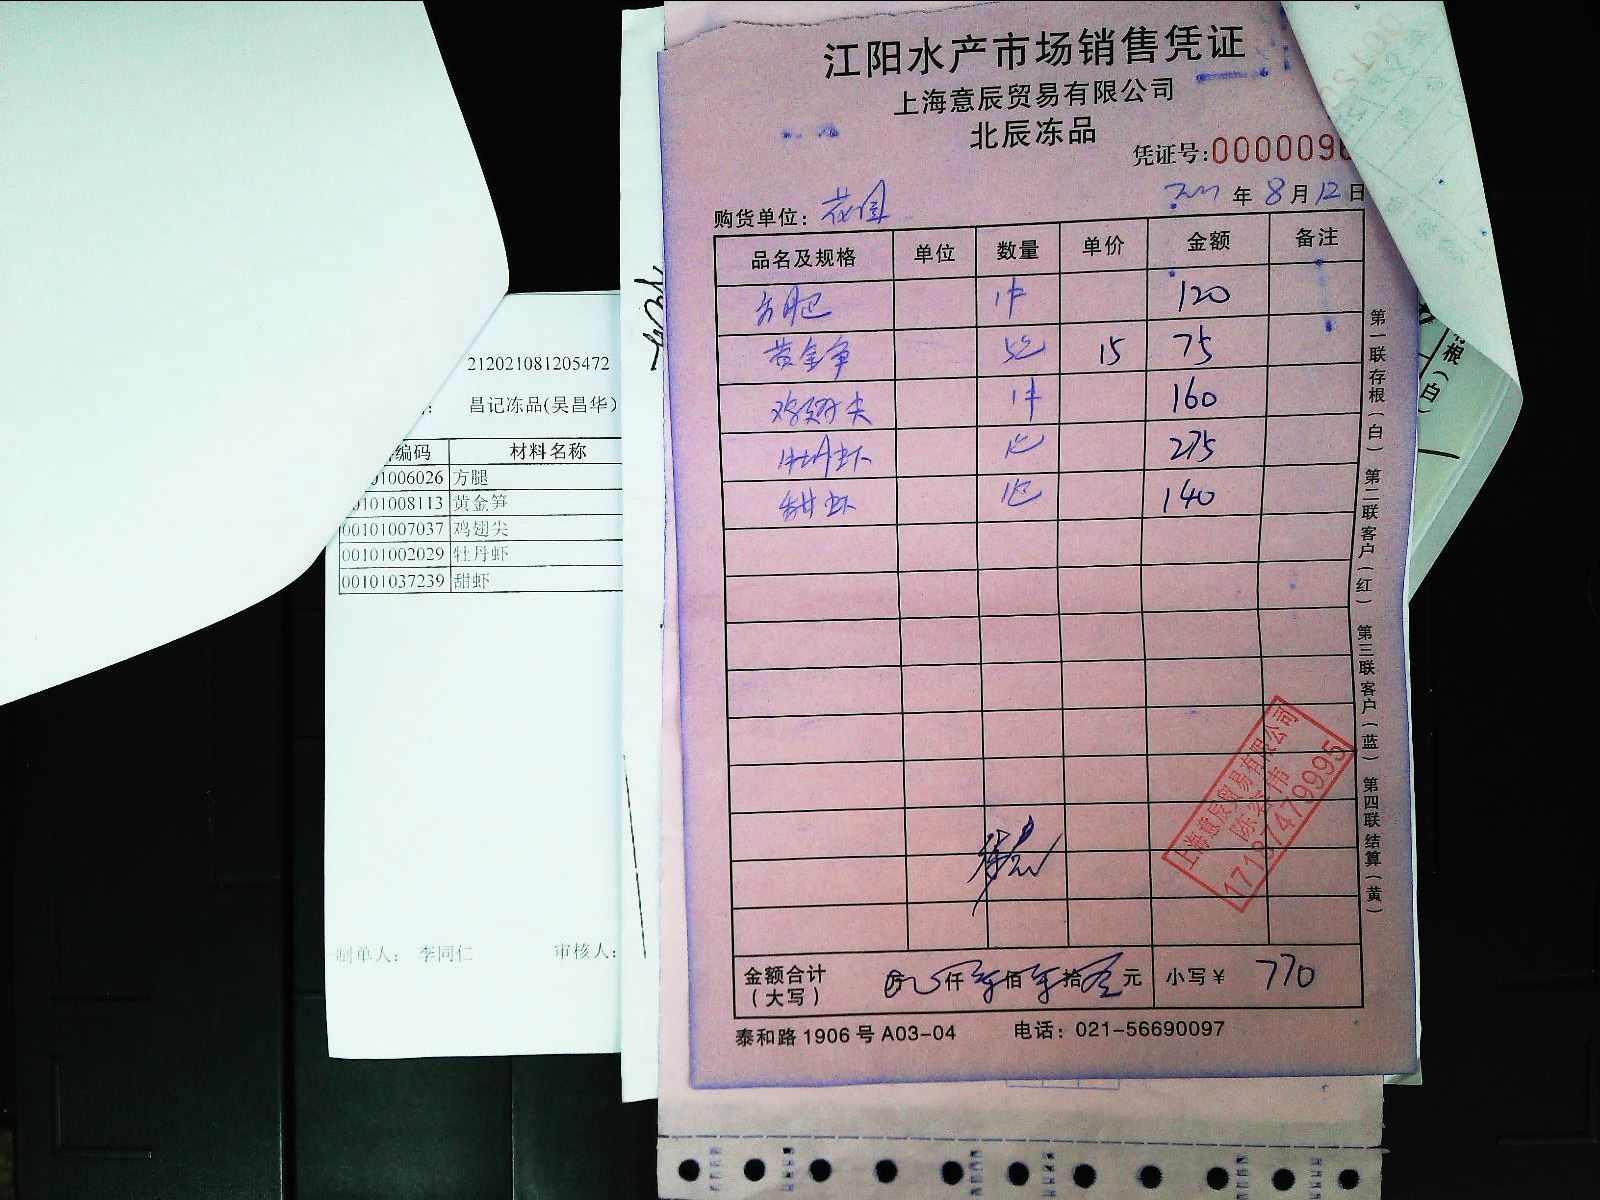 江阳水产市场销售凭证
上海意辰贸易有限公司
北辰冻品
凭证号:000009
购货单位: 花园 年 8 月 12 日
品名及规格 单位 数量 单价 金额 备注
方腿 1件 120
黄金笋 5包 15 75
鸡翅尖 1件 160
牡丹虾 1包 275
甜虾 1包 140
金额合计（大写） 仟 佰 拾 元 小写￥ 770
泰和路 1906 号 A03-04 电话：021-56690097
第一联存根（白） 第二联客户（红） 第三联客户（蓝） 第四联结算（黄）
上海意辰贸易有限公司
17197479995
212021081205472
昌记冻品(吴昌华)
编码 材料名称
01006026 方腿
0101008113 黄金笋
00101007037 鸡翅尖
00101002029 牡丹虾
00101037239 甜虾
制单人： 李同仁 审核人：
根（白）